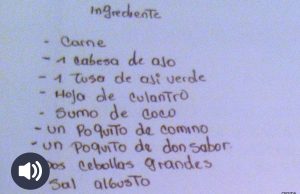 Ingrediente
- Carne
- 1 Cabesa de ajo
- 1 Tusa de aji verde
- Hoja de culantro
- Sumo de coco
- un Poquito de comino
- un Poquito de don sabor
Dos cebollas grandes
Sal al gusto